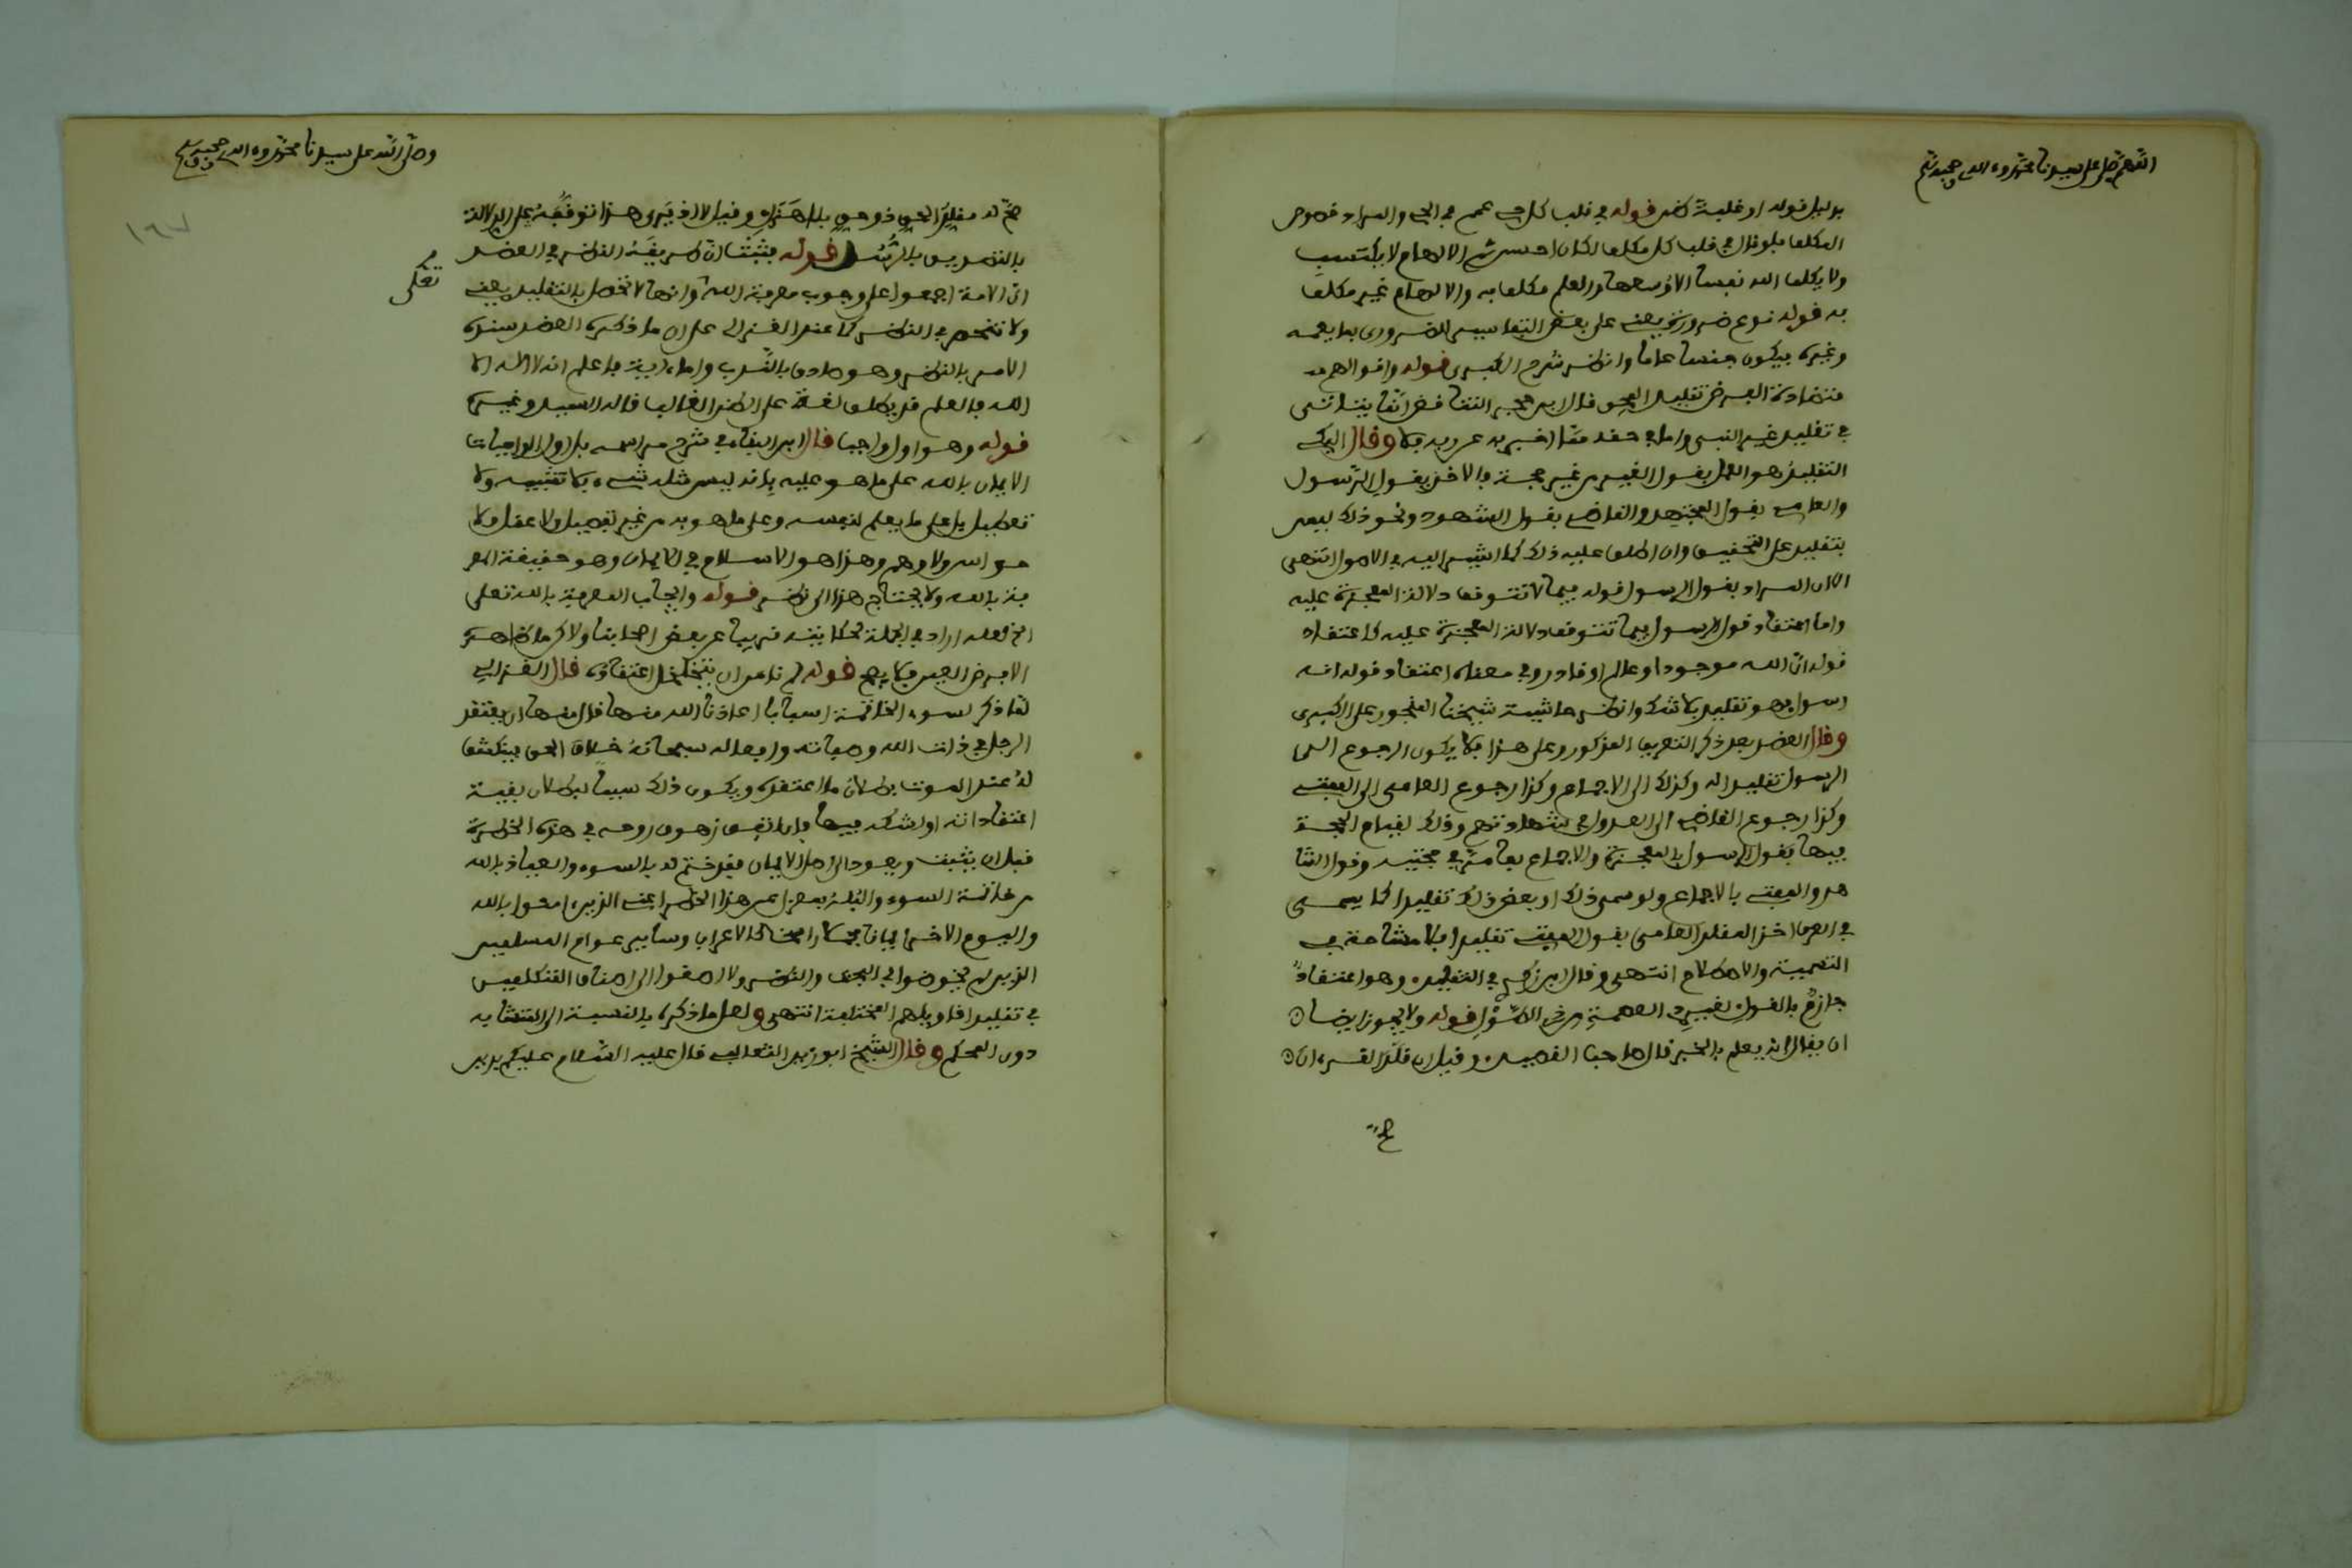 اللهم صل على سيدنا محمد وءاله وصحبه وسلم
بدليل قوله او غلبة ظن قوله في قلب كل حي عمم في الحي والمراد خصوص
المكلف فلو قال في قلب كل مكلف لكان احسن ثم الالهام لا يكتسب
ولا يكلف الله نفسا الا وسعها والعلم مكلف به والالهام غير مكلف
به قوله نوع ضروري يعني على بعض التفاسير للضروري بما يعمه
وغيره فيكون جنسا عاما وانظر شرح الكبرى قوله واقوالهم
متضادة الفرض تقليد المحق قال ابن حجر التناقض انما يتاتى
في تقليد غير النبي واما في حقه مما اخبر به عن ربه فلا وقال
التقليد هو العمل بقول الغير من غير حجة فالاخذ بقول الرسول
والعامي بقول المجتهد والقاضي بقول الشهود ونحو ذلك ليس
بتقليد على التحقيق وان اطلق عليه ذلك كما اشير اليه في الاصول انتهى
لاكن المراد بقول الرسول قوله فيما لا تتوقف دلالة المعجزة عليه
واما اعتقاد قول الرسول فيما تتوقف دلالة المعجزة عليه كاعتقاد
قوله ان الله موجود او عالم او قادر وفي معناه اعتقاد قوله انه
رسول فهو تقليد بلا شك وانظر حاشية شيخنا المنجور على الكبرى
وقال العضد بعد ذكر التعريف المذكور وعلى هذا فلا يكون الرجوع الى
الرسول تقليدا له وكذلك الى الاجماع وكذا رجوع العامي الى المفتي
وكذا رجوع القاضي الى العدول في شهادتهم وذلك لقيام الحجة
فيها فقول الرسول بالمعجزة والاجماع بما مر في حجيته وقول الشا
هد والمفتي بالاجماع ولو سمى ذلك او بعض ذلك تقليدا كما يسمى
في العرف اخذ المقلد العامي بقول المفتي تقليدا فلا مشاحة في
التسمية والاصطلاح انتهى وقال ابن زكري في التقليد وهو اعتقاد
جازم بالقول لغير ذي العصمة من الرسل قوله ولا يجوز ايضا
ان يقال انه يعلم بالخبر قال صاحب القصيد وقيل ان قلد القرءان
وصلى الله على سيدنا محمد وءاله وصحبه وسلم
١٦٧
صح له مقلد الحق ذو حق بلا وقيل لا اذ يرى هذا توقفه على الدلالة
بالتصديق بالرسل قوله فثبت ان طريقه النظر في العضد
ان الامة اجمعوا على وجوب معرفة الله تعلى وانها لا تحصل بالتقليد يعني
ولا تنحصر في النظر كما عند الغزالي على ان ما ذكره العضد سنده
الامر بالنظر وهو صادق بالندب واما ءاية فاعلم انه لا اله الا
الله فالعلم قد يطلق لغة على الظن الغالب قاله السيد وغيره
قوله وهو اول واجب قال ابن البناء في شرح مراسمه بل اول الواجبات
الايمان بالله على ما هو عليه بانه ليس مثله شيء بلا تشبيه ولا
تعطيل بل على ما يعلم لنفسه وعلى ما هو به من غير تفصيل ولا عقل ولا
حواس ولا وهم وهذا هو الاسلام في الايمان وهو حقيقة المعر
فة بالله ولا يحتاج هذا الى نظر قوله وايجاب المعرفة بالله تعلى
اراد في الجملة لحكايته قريبا عن بعض اصحابنا ولاكن ما ظاهره
الامر فلا يصح قوله لم نامن ان يتخلخل اعتقاده قال الغزالي
لما ذكر لسوء الخاتمة اسبابا اعاذنا الله منها قال منها ان يعتقد
الرجل في ذات الله وصفاته وافعاله سبحانه خلاف الحق فينكشف
له عند الموت بطلان ما اعتقده ويكون ذلك سببا لبطلان بقية
اعتقاداته او لشكه فيها فان اتفق زهوق روحه في هذه الخطرة
قبل ان يثبت ويعود الى اصل الايمان فقد ختم له بالسوء والعياذ بالله
من خاتمة السوء والبله بمعزل عن هذا الخطر اعني الذين ءامنوا بالله
واليوم الاخر ايمانا مجملا راسخا كالاعراب وساير عوام المسلمين
الذين لم يخوضوا في البحث والنظر ولا اصغوا الى اصناف المتكلمين
في تقليد اقاويلهم المختلفة انتهى ولعل ما ذكره بالنسبة الى المتشابه
دون المحكم وقال الشيخ ابو زيد الثعالبي قال عليه السلام عليكم بدين